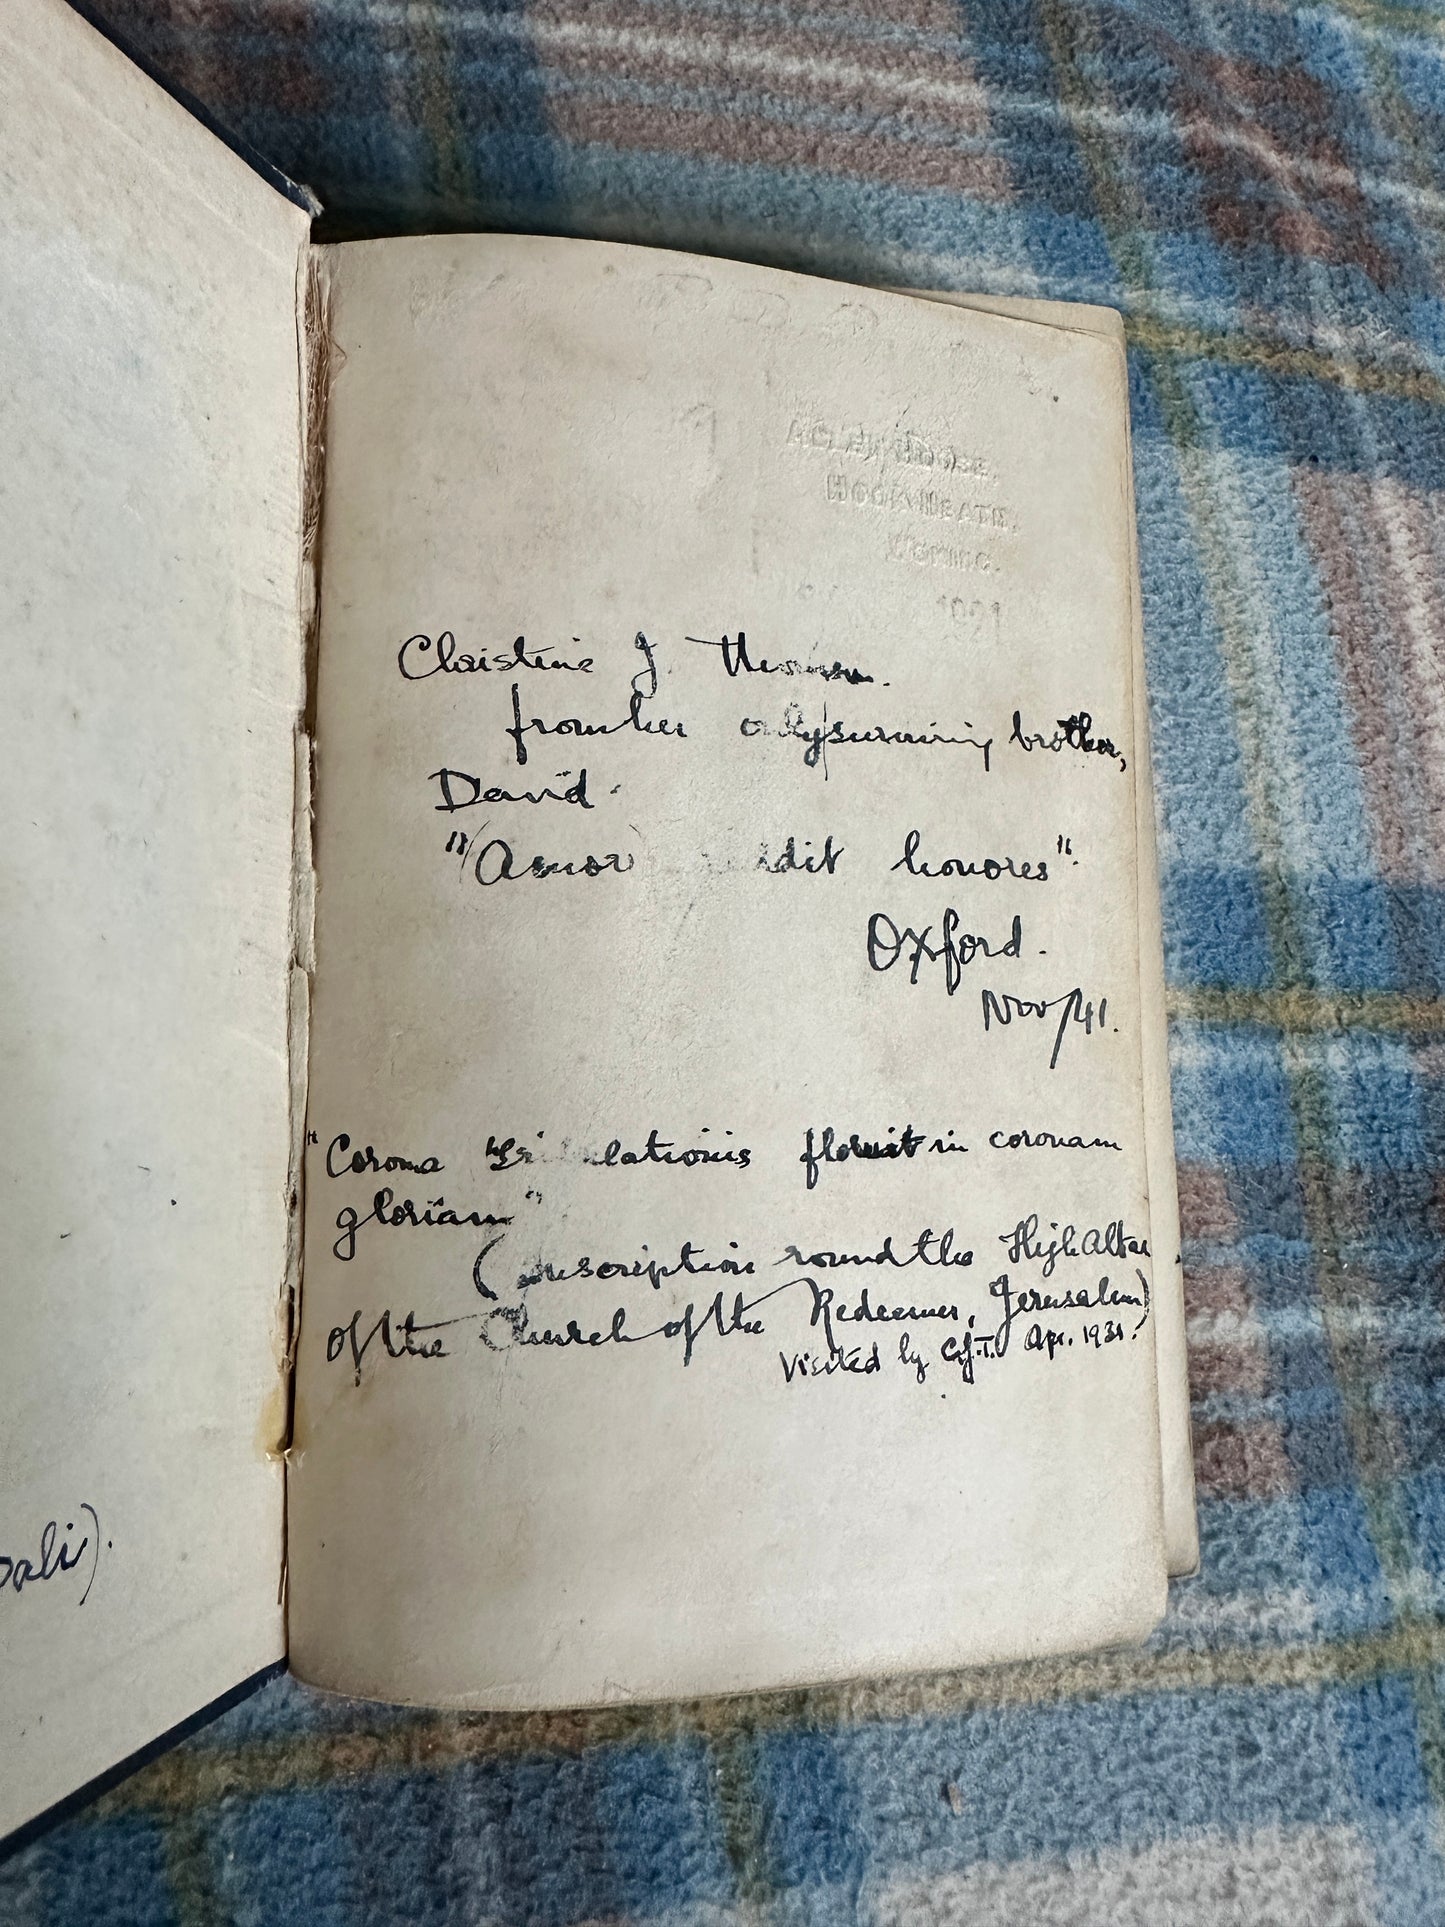 Christine J.
from her only surviving brother,
David.
"Amor honores".
Oxford.
Nov/41.
"Corona floruit in coronam
gloriam"
(inscription round the High Altar
of the Church of the Redeemer, Jerusalem)
Visited by C.J.T. Apr. 1931.
oali).
HOOK HEATH.